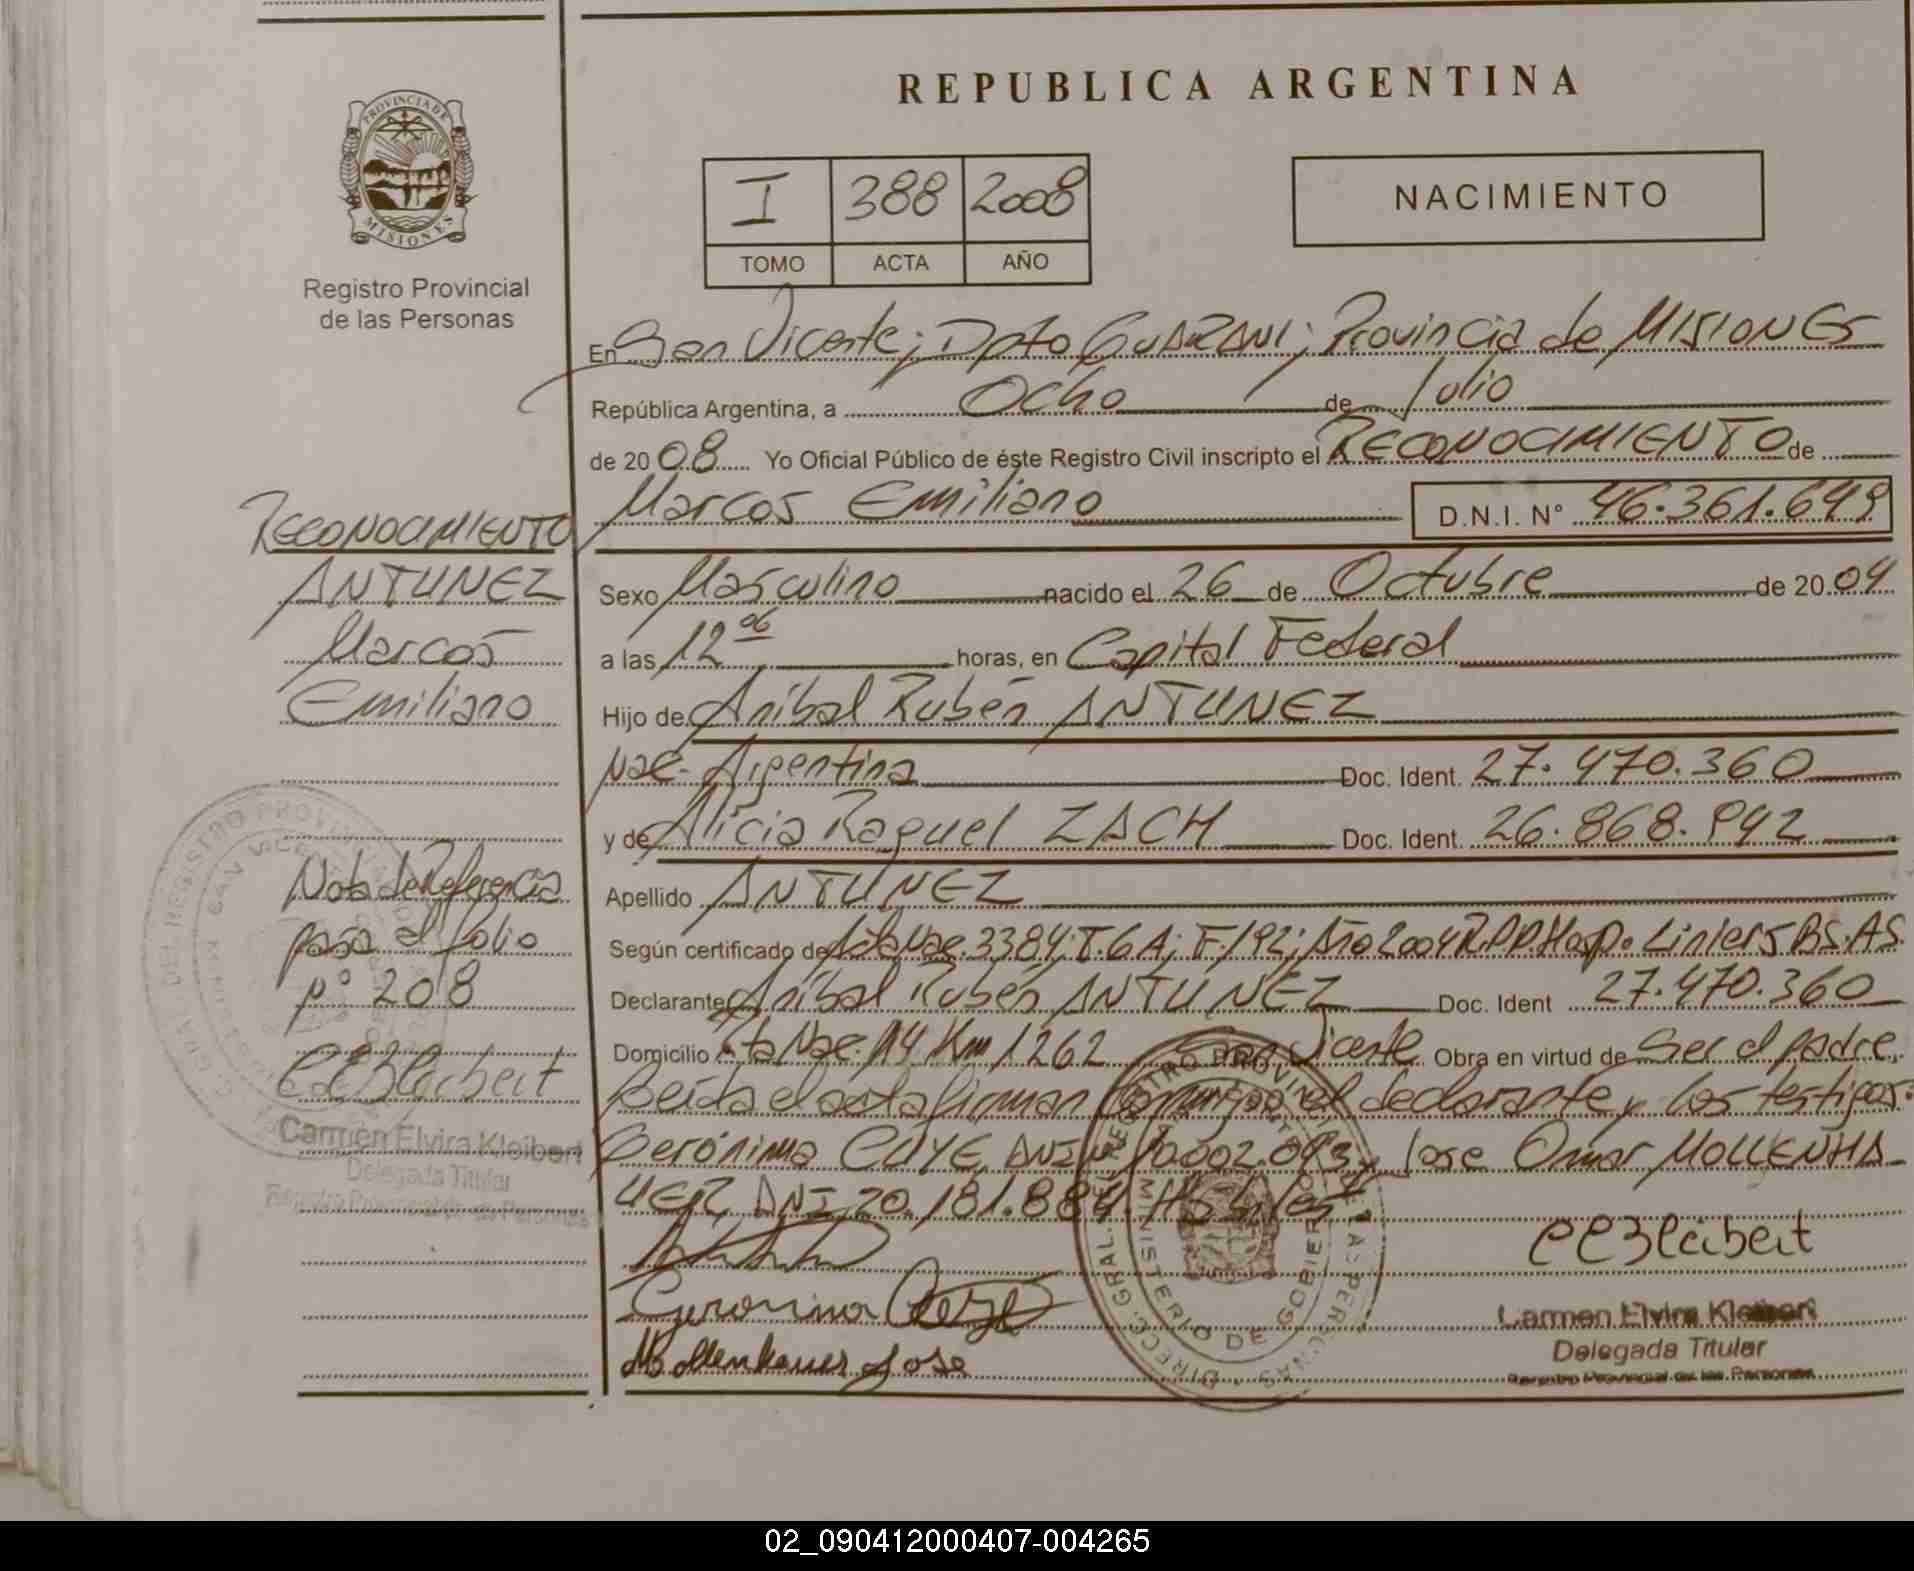 REPUBLICA ARGENTINA
PROVINCIA DE
MISIONES
Registro Provincial
de las Personas
I 388 2008
TOMO ACTA AÑO
NACIMIENTO
En San Vicente; Dpto GUARANI; Provincia de MISIONES
República Argentina, a Ocho de Julio
de 2008 Yo Oficial Público de éste Registro Civil inscripto el RECONOCIMIENTO de
Marcos Emiliano D.N.I. N° 46.361.649
Sexo Masculino nacido el 26 de Octubre de 2004
a las 12 06 horas, en Capital Federal
Hijo de Aníbal Rubén ANTUNEZ
Nac. Argentina Doc. Ident. 27.470.360
y de Alicia Raquel ZACH Doc. Ident. 26.868.942
Apellido ANTUNEZ
Según certificado de Acta Nac. 3384; T. 6A; F. 192; Año 2004 R.P.P. Hosp. Liniers BS.AS.
Declarante Aníbal Rubén ANTUNEZ Doc. Ident 27.470.360
Domicilio Rta Nac. 14 Km 1262 San Vicente Obra en virtud de Ser el padre.
Leída el acta firman conmigo el declarante y los testigos:
Gerónima CUYE, DNI 10.002.093 y Jose Omar MOLLENHA-
UER, DNI 20.181.884. Hábiles
Geronima
Mollenhauer Jose
Carmen Elvira Kleibert
Delegada Titular
Registro Provincial de las Personas
RECONOCIMIENTO
ANTUNEZ
Marcos
Emiliano
Nota de Referencia
pasa al folio
N° 208
Carmen Elvira Kleibert
Delegada Titular
Registro Provincial de las Personas
02_090412000407-004265